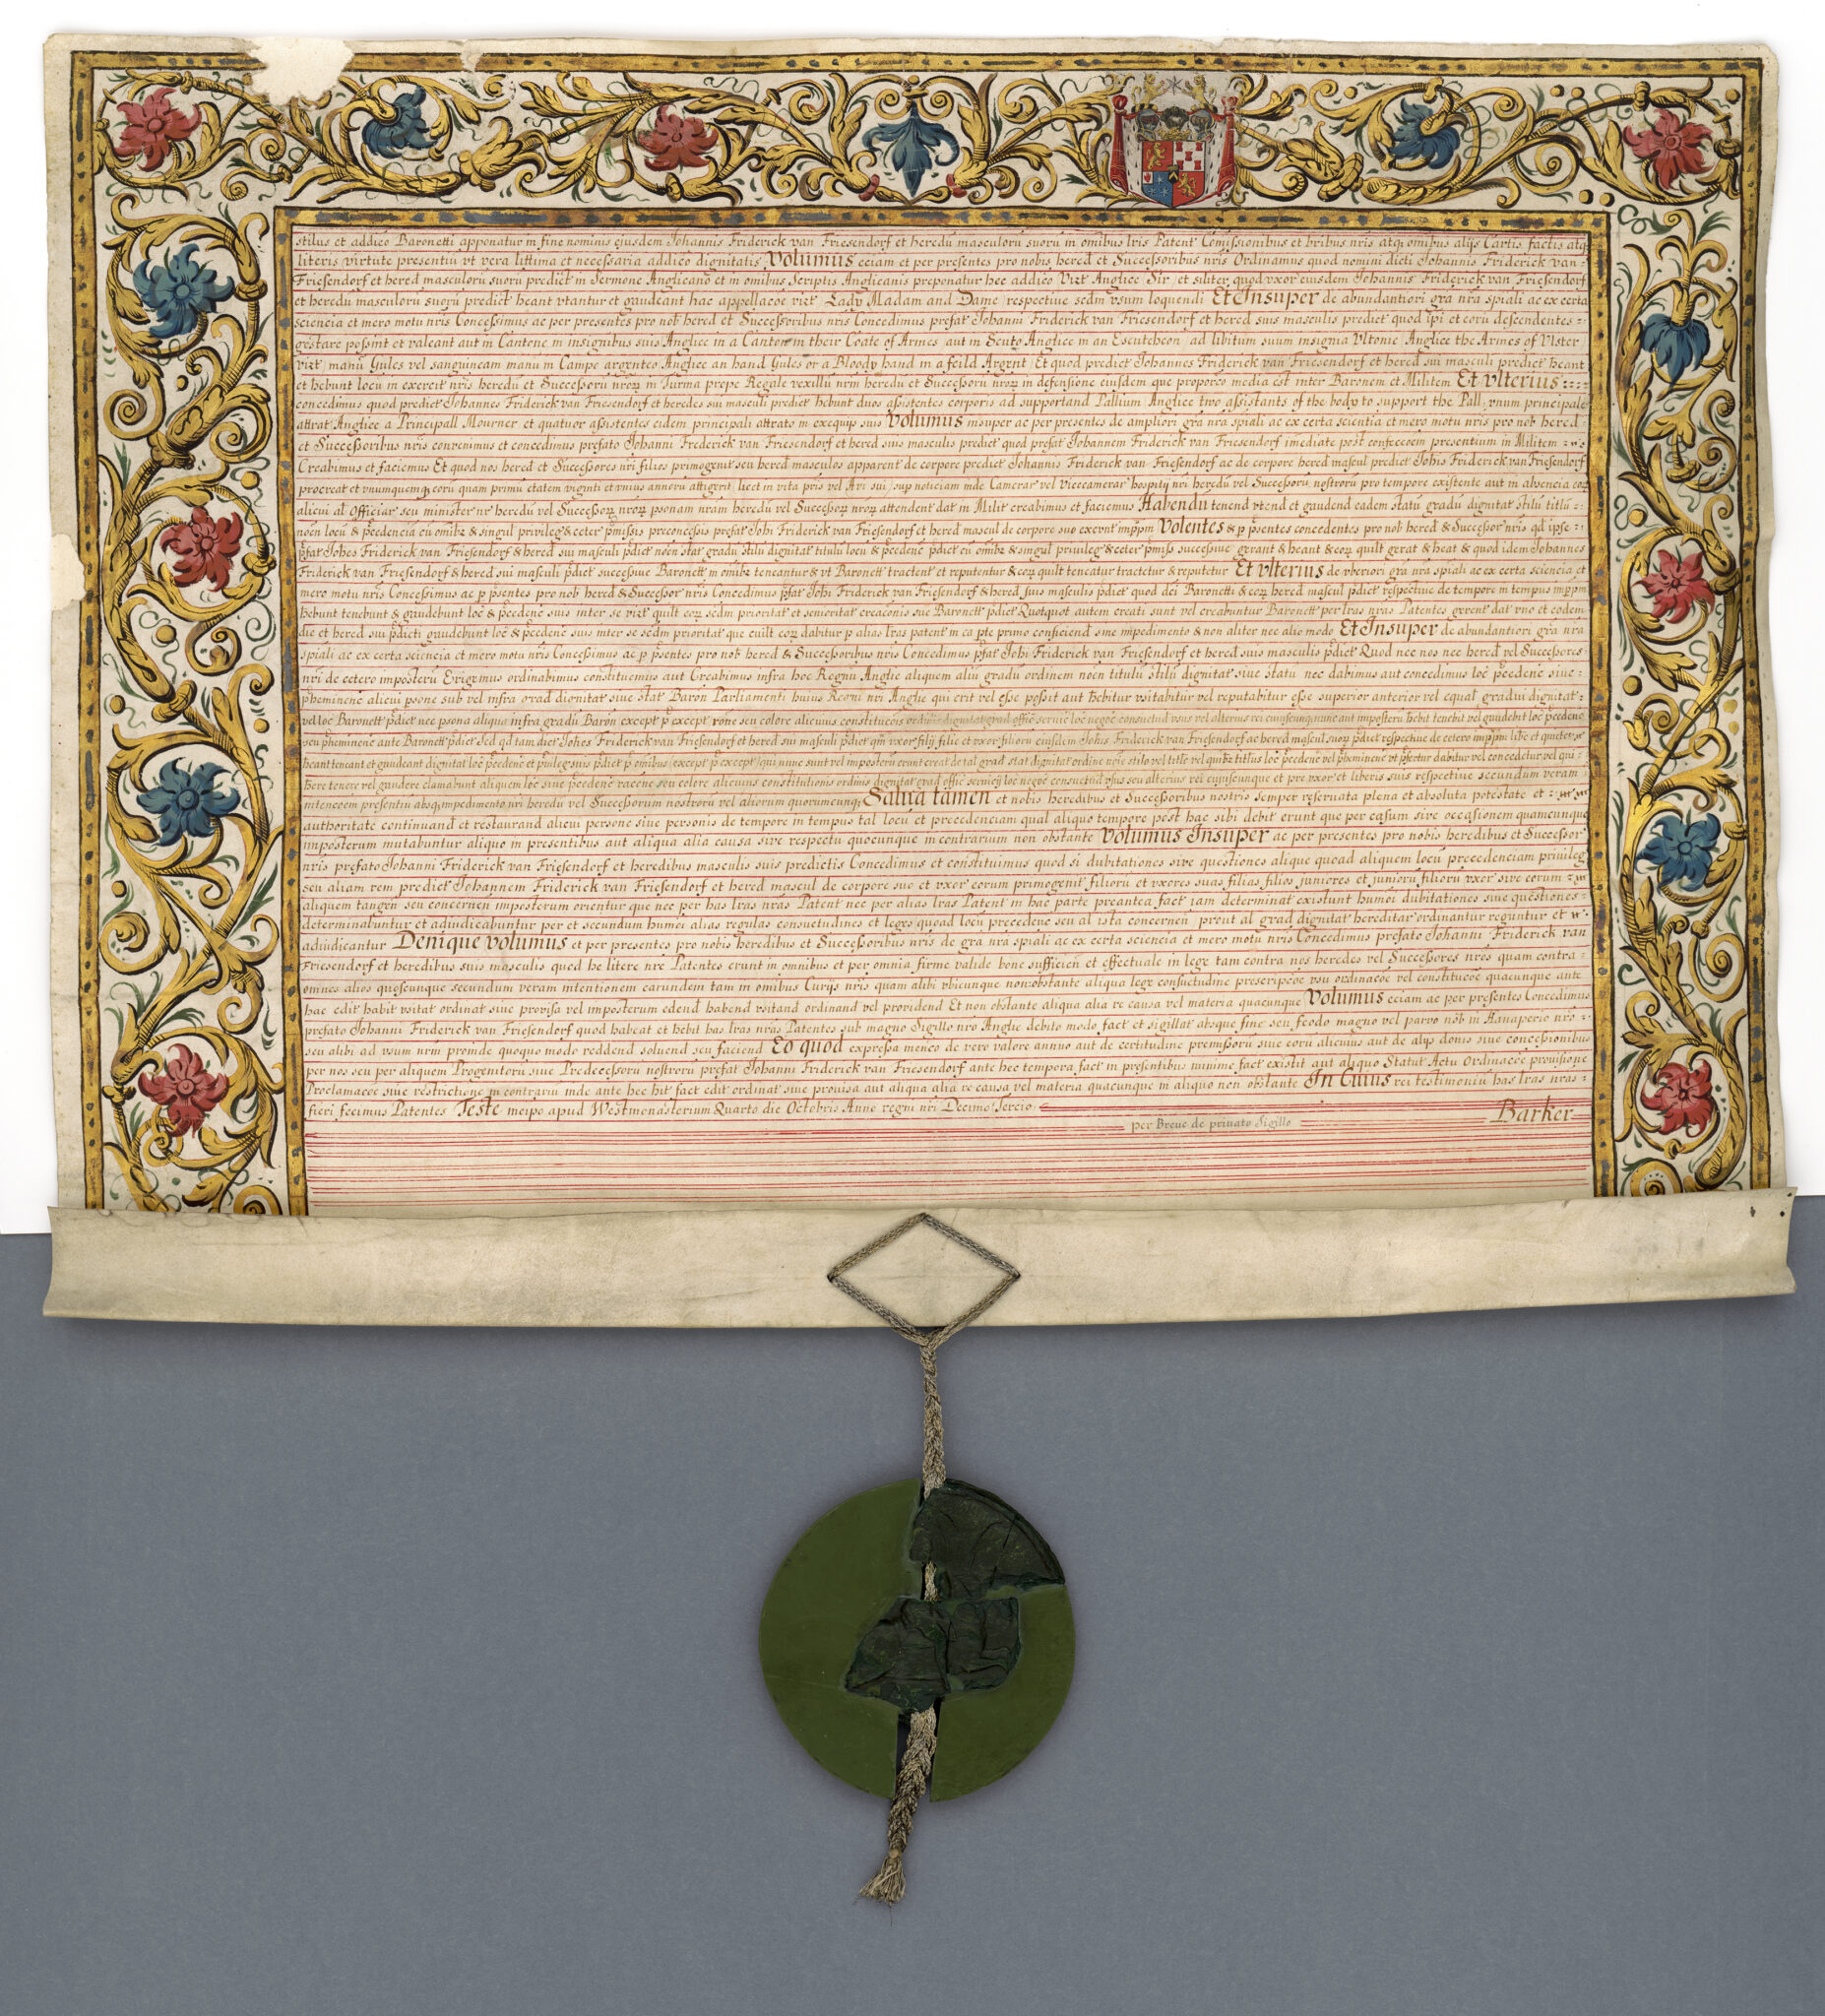 stilus et addico Baronetti apponatur in fine nominis ejusdem Johannis Friderick van Friesendorf et heredū masculorū suorū in omibus lris Patent Comissionibus et bribus nris atq omibus alijs Cartis factis atq
literis virtute presentiū vt vera littima et necessaria addico dignitatis Volumus eciam et per presentes pro nobis hered et Successoribus nris Ordinamus quod nomini dicti Johannis Friderick van
Friesendorf et hered masculorū suorū predict in Sermone Anglicano et in omibus Scriptis Anglicanis preponatur hec addico Vizt Anglice Sir et siliter quod vxor eiusdem Johannis Friderick van Friesendorf
et heredū masculorū suorū predict heant vtantur et gaudeant hac appellacōe vizt Lady Madam and Dame respective scdm vsum loquendi Et Insuper de abundantiori gra nra spiali ac ex certa
sciencia et mero motu nris Concessimus ac per presentes pro nob hered et Successoribus nris Concedimus prefat Johanni Friderick van Friesendorf et hered suis masculis predict quod ipi et eorū descendentes
gestare possint et valeant aut in Cantone in insignibus suis Anglice in a Canton in their Coate of Armes aut in Scuto Anglice in an Escutcheon ad libitum suum insignia Vltonie Anglice the Armes of Vlster
vizt manū Gules vel sanguineam manū in Campo argenteo Anglice an hand Gules or a Bloody hand in a feild Argent Et quod predict Johannes Friderick van Friesendorf et hered sui masculi predict heant
et hebunt locū in exercit nris heredū et Successorū nroz in Turma prope Regale vexillū nrm heredū et Successorū nroz in defensione eiusdem que proporco media est inter Baronem et Militem Et vlterius
concedimus quod predict Johannes Friderick van Friesendorf et heredes sui masculi predict hebunt duos assistentes corporis ad supportand Pallium Anglice two assistants of the body to support the Pall vnum principale
attrat Anglice a Principall Mourner et quatuor assistentes eidem principali attrato in exequijs suis Volumus insuper ac per presentes de ampliori gra nra spiali ac ex certa scientia et mero motu nris pro nob hered
et Successoribus nris convenimus et concedimus prefato Johanni Friderick van Friesendorf et hered suis masculis predict quod prefat Johannem Friderick van Friesendorf imediate post confeccōem presentium in Militem
Creabimus et faciemus Et quod nos hered et Successores nri filios primogenit seu hered masculos apparent de corpore predict Johannis Friderick van Friesendorf ac de corpore hered mascul predict Johis Friderick van Friesendorf
procreat et vnumquemq eorū quam primū etatem viginti et vnius annorū attigerit licet in vita pris vel Avi sui sup noticiam inde Camerar vel Vicecamerar hospitij nri heredū vel Successorū nostrorū pro tempore existente aut in absencia eoz
alicui al Officiar seu minister nr heredū vel Successoz nroz psonam nram heredū vel Successoz nroz attendent dat in Milit creabimus et faciemus Habendū tenend vtend et gaudend eadem statū gradū dignitat stilū titlū
noen locū & pcedencia cū omibz & singul privileg & ceter pmissis preconcessis prefat Johi Friderick van Friesendorf et hered mascul de corpore suo exeunt imppm Volentes & p psentes concedentes pro nob hered & Successor nris qd ipse
pfat Johes Friderick van Friesendorf & hered sui masculi pdict noen stat gradū stilū dignitat titulū locū & pcedenc pdict cū omibz & singul privileg & ceter pmiss successive gerant & heant & eoz quilt gerat & heat & quod idem Johannes
Friderick van Friesendorf & hered sui masculi pdict successive Baronett in omibz teneantur & vt Baronett tractent et reputentur & eoz quilt teneatur tractetur & reputetur Et vlterius de vberiori gra nra spiali ac ex certa sciencia et
mero motu nris Concessimus ac p psentes pro nob hered & Successor nris Concedimus pfat Johi Friderick van Friesendorf & hered suis masculis pdict quod dci Baronetti & eoz hered mascul pdict respective de tempore in tempus imppm
hebunt tenebunt & gaudebunt loc & pcedenc suis inter se vizt quilt eoz scdm prioritat et senioritat creacōnis sue Baronett pdict Quotquot autem creati sunt vel creabuntur Baronett per lras nras Patentes gerent dat vno et eodem
die et hered sui pdicti gaudebunt loc & pcedenc suis inter se scdm prioritat que cuilt eoz dabitur p alias lras patent in ca pte primo conficiend sine impedimento & non aliter nec alio modo Et Insuper de abundantiori gra nra
spiali ac ex certa sciencia et mero motu nris Concessimus ac p psentes pro nob hered & Successoribus nris Concedimus pfat Johi Friderick van Friesendorf et hered suis masculis pdict Quod nec nos nec hered vel Successores
nri de cetero imposterū Erigemus ordinabimus constituemus aut Creabimus infra hoc Regnū Anglie aliquem aliū gradū ordinem noen titulū stilū dignitat sive statū nec dabimus aut concedimus loc pcedenc sive
pheminenc alicui psone sub vel infra grad dignitat sive stat Baron Parliamenti huius Regni nri Anglie qui erit vel esse possit aut hebitur vsitabitur vel reputabitur esse superior anterior vel equal gradui dignitat
vel loc Baronett pdict nec psona aliqua infra gradū Baron except p except rone seu colore alicuius constitucōis ordinis dignitat grad offic servic loc negoc consuetud vsus vel alterius rei cuiuscunq nunc aut imposterū hebit tenebit vel gaudebit loc pcedenc
seu pheminenc ante Baronett pdict Sed qd tam dict Johes Friderick van Friesendorf et hered sui masculi pdict qm vxor filij filie et vxor filiorū eiusdem Johis Friderick van Friesendorf ac hered mascul suoz pdict respective de cetero imppm libe et quiete
heant teneant et gaudeant dignitat loc pcedenc et pvileg suis pdict p omibus (except p except) qui nunc sunt vel imposterū erunt creat de tal grad stat dignitat ordine noie stilo vel titlo vel quibz titlus loc pcedenc vel pheminenc vt pfertur dabitur vel concedetur vel qui
here tenere vel gaudere clamabunt aliquem loc sive pcedenc racōne seu colore alicuius constitutionis ordinis dignitat grad offic servicij loc negoc consuetud vsus seu alterius rei cuiuscunque et pre vxor et liberis suis respective secundum veram
intencoem presentiū absq impedimento nri heredū vel Successorum nostrorū vel aliorum quorumcunq Salva tamen et nobis heredibus et Successoribus nostris semper reservata plena et absoluta potestate et
authoritate continuand et restaurand alicui persone sive personis de tempore in tempus tal locū et precedenciam qual aliquo tempore post hac sibi debit erunt que per casum sive occasionem quamcunque
imposterum mutabuntur aliquo in presentibus aut aliqua alia causa sive respectu quocunque in contrarium non obstante Volumus Insuper ac per presentes pro nobis heredibus et Successor
nris prefato Johanni Friderick van Friesendorf et heredibus masculis suis predictis Concedimus et constituimus quod si dubitationes sive questiones alique quoad aliquem locū precedenciam privileg
seu aliam rem predict Johannem Friderick van Friesendorf et hered mascul de corpore suo et vxor eorum primogenit filiorū et vxores suas filias filios juniores et juniorū filiorū vxor sive eorum
aliquem tangen seu concernen imposterum orientur que nec per has lras nras Patent nec per alias lras Patent in hac parte preantea fact iam determinat existunt humoi dubitationes sive questiones
determinabuntur et adiudicabuntur per et secundum humoi alias regulas consuetudines et leges quoad locū precedenc seu al ista concernen prout al grad dignitat hereditar ordinantur reguntur et
adiudicantur Denique volumus et per presentes pro nobis heredibus et Successoribus nris de gra nra spiali ac ex certa sciencia et mero motu nris Concedimus prefato Johanni Friderick van
Friesendorf et heredibus suis masculis quod he litere nre Patentes erunt in omnibus et per omnia firme valide bone sufficien et effectuale in lege tam contra nos heredes vel Successores nros quam contra
omnes alios quoscunque secundum veram intentionem earundem tam in omibus Curijs nris quam alibi vbicunque non obstante aliqua lege consuetudine prescripcōe vsu ordinacōe vel constitucōe quacunque ante
hac edit habit vsitat ordinat sive provisa vel imposterum edend habend vsitand ordinand vel providend Et non obstante aliqua alia re causa vel materia quacunque Volumus eciam ac per presentes Concedimus
prefato Johanni Friderick van Friesendorf quod habeat et hebit has lras nras Patentes sub magno Sigillo nro Anglie debito modo fact et sigillat absque fine seu feodo magno vel parvo nob in Hanaperio nro
seu alibi ad vsum nrm proinde quoquo modo reddend solvend seu faciend Eo quod expressa mencō de vero valore annuo aut de certitudine premissorū sive eorū alicuius aut de alijs donis sive concessionibus
per nos seu per aliquem Progenitorū sive Predecessorū nostrorū prefat Johanni Friderick van Friesendorf ante hec tempora fact in presentibus minime fact existit aut aliquo Statut Actu Ordinacōe provisione
Proclamacōe sive restrictione in contrariū inde ante hec hit fact edit ordinat sive provisa aut aliqua alia re causa vel materia quacunque in aliquo non obstante In Cuius rei testimoniū has lras nras
fieri fecimus Patentes Teste meipo apud Westmonasterium Quarto die Octobris Anno regni nri Decimo Tercio
Barker
per Breve de privato Sigillo